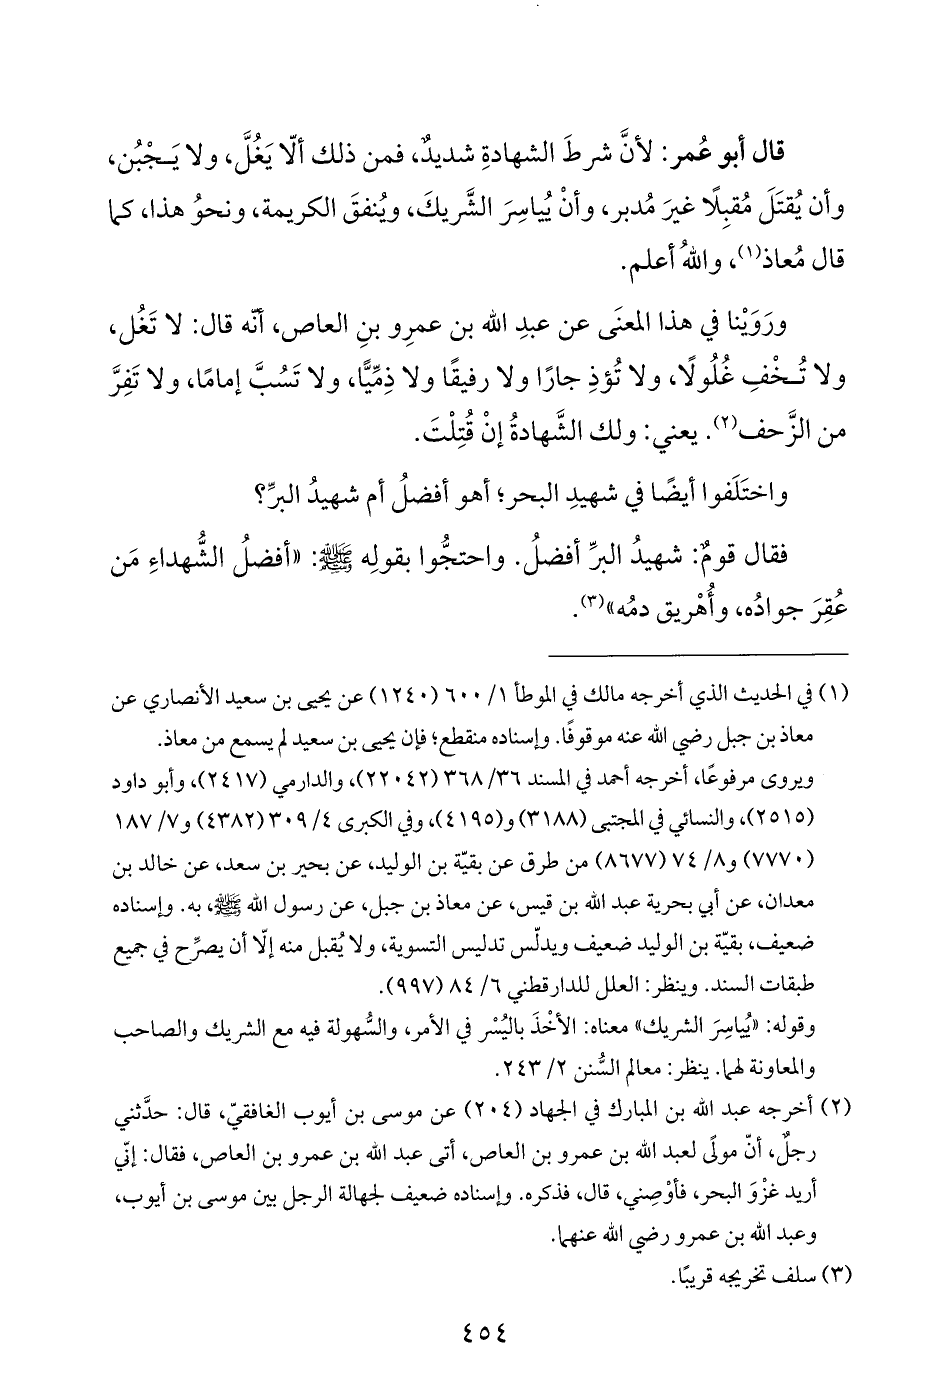 قال أبو عُمر: لأنَّ شرطَ الشهادةِ شديدٌ، فمن ذلك ألّا يَغُلَّ، ولا يَـجْبُن،
وأن يُقتَلَ مُقبِلًا غيرَ مُدبر، وأنْ يُياسِرَ الشَّريكَ، ويُنفقَ الكريمة، ونحوُ هذا، كما
قال مُعاذ(١)، واللهُ أعلم.
ورَوَيْنا في هذا المعنَى عن عبدِ الله بن عمرِو بنِ العاص، أنّه قال: لا تَغُل،
ولا تُـخْفِ غُلُولًا، ولا تُؤذِ جارًا ولا رفيقًا ولا ذِمِّيًّا، ولا تَسُبَّ إمامًا، ولا تَفِرَّ
من الزَّحف(٢). يعني: ولك الشَّهادةُ إنْ قُتِلْتَ.
واختَلَفوا أيضًا في شهيدِ البحر؛ أهو أفضلُ أم شهيدُ البرِّ؟
فقال قومٌ: شهيدُ البرِّ أفضلُ. واحتجُّوا بقولِه ﷺ: «أفضلُ الشُّهداءِ مَن
عُقِرَ جوادُه، وأُهْريق دمُه»(٣).
(١) في الحديث الذي أخرجه مالك في الموطأ ١/ ٦٠٠ (١٢٤٠) عن يحيى بن سعيد الأنصاري عن
معاذ بن جبل رضي الله عنه موقوفًا. وإسناده منقطع؛ فإن يحيى بن سعيد لم يسمع من معاذ.
ويروى مرفوعًا، أخرجه أحمد في المسند ٣٦/ ٣٦٨ (٢٢٠٤٢)، والدارمي (٢٤١٧)، وأبو داود
(٢٥١٥)، والنسائي في المجتبى (٣١٨٨) و(٤١٩٥)، وفي الكبرى ٤/ ٣٠٩ (٤٣٨٢) و٧/ ١٨٧
(٧٧٧٠) و٨/ ٧٤ (٨٦٧٧) من طرق عن بقيّة بن الوليد، عن بحير بن سعد، عن خالد بن
معدان، عن أبي بحرية عبد الله بن قيس، عن معاذ بن جبل، عن رسول الله ﷺ، به. وإسناده
ضعيف، بقيّة بن الوليد ضعيف ويدلّس تدليس التسوية، ولا يُقبل منه إلّا أن يصرِّح في جميع
طبقات السند. وينظر: العلل للدارقطني ٦/ ٨٤ (٩٩٧).
وقوله: «يُياسِرَ الشريك» معناه: الأخْذَ باليُسْر في الأمر، والسُّهولة فيه مع الشريك والصاحب
والمعاونة لهما. ينظر: معالم السُّنن ٢/ ٢٤٣.
(٢) أخرجه عبد الله بن المبارك في الجهاد (٢٠٤) عن موسى بن أيوب الغافقيّ، قال: حدَّثني
رجلٌ، أنّ مولًى لعبد الله بن عمرو بن العاص، أتى عبد الله بن عمرو بن العاص، فقال: إنّي
أريد غزْوَ البحر، فأوْصِني، قال، فذكره. وإسناده ضعيف لجهالة الرجل بين موسى بن أيوب،
وعبد الله بن عمرو رضي الله عنهما.
(٣) سلف تخريجه قريبًا.
٤٥٤